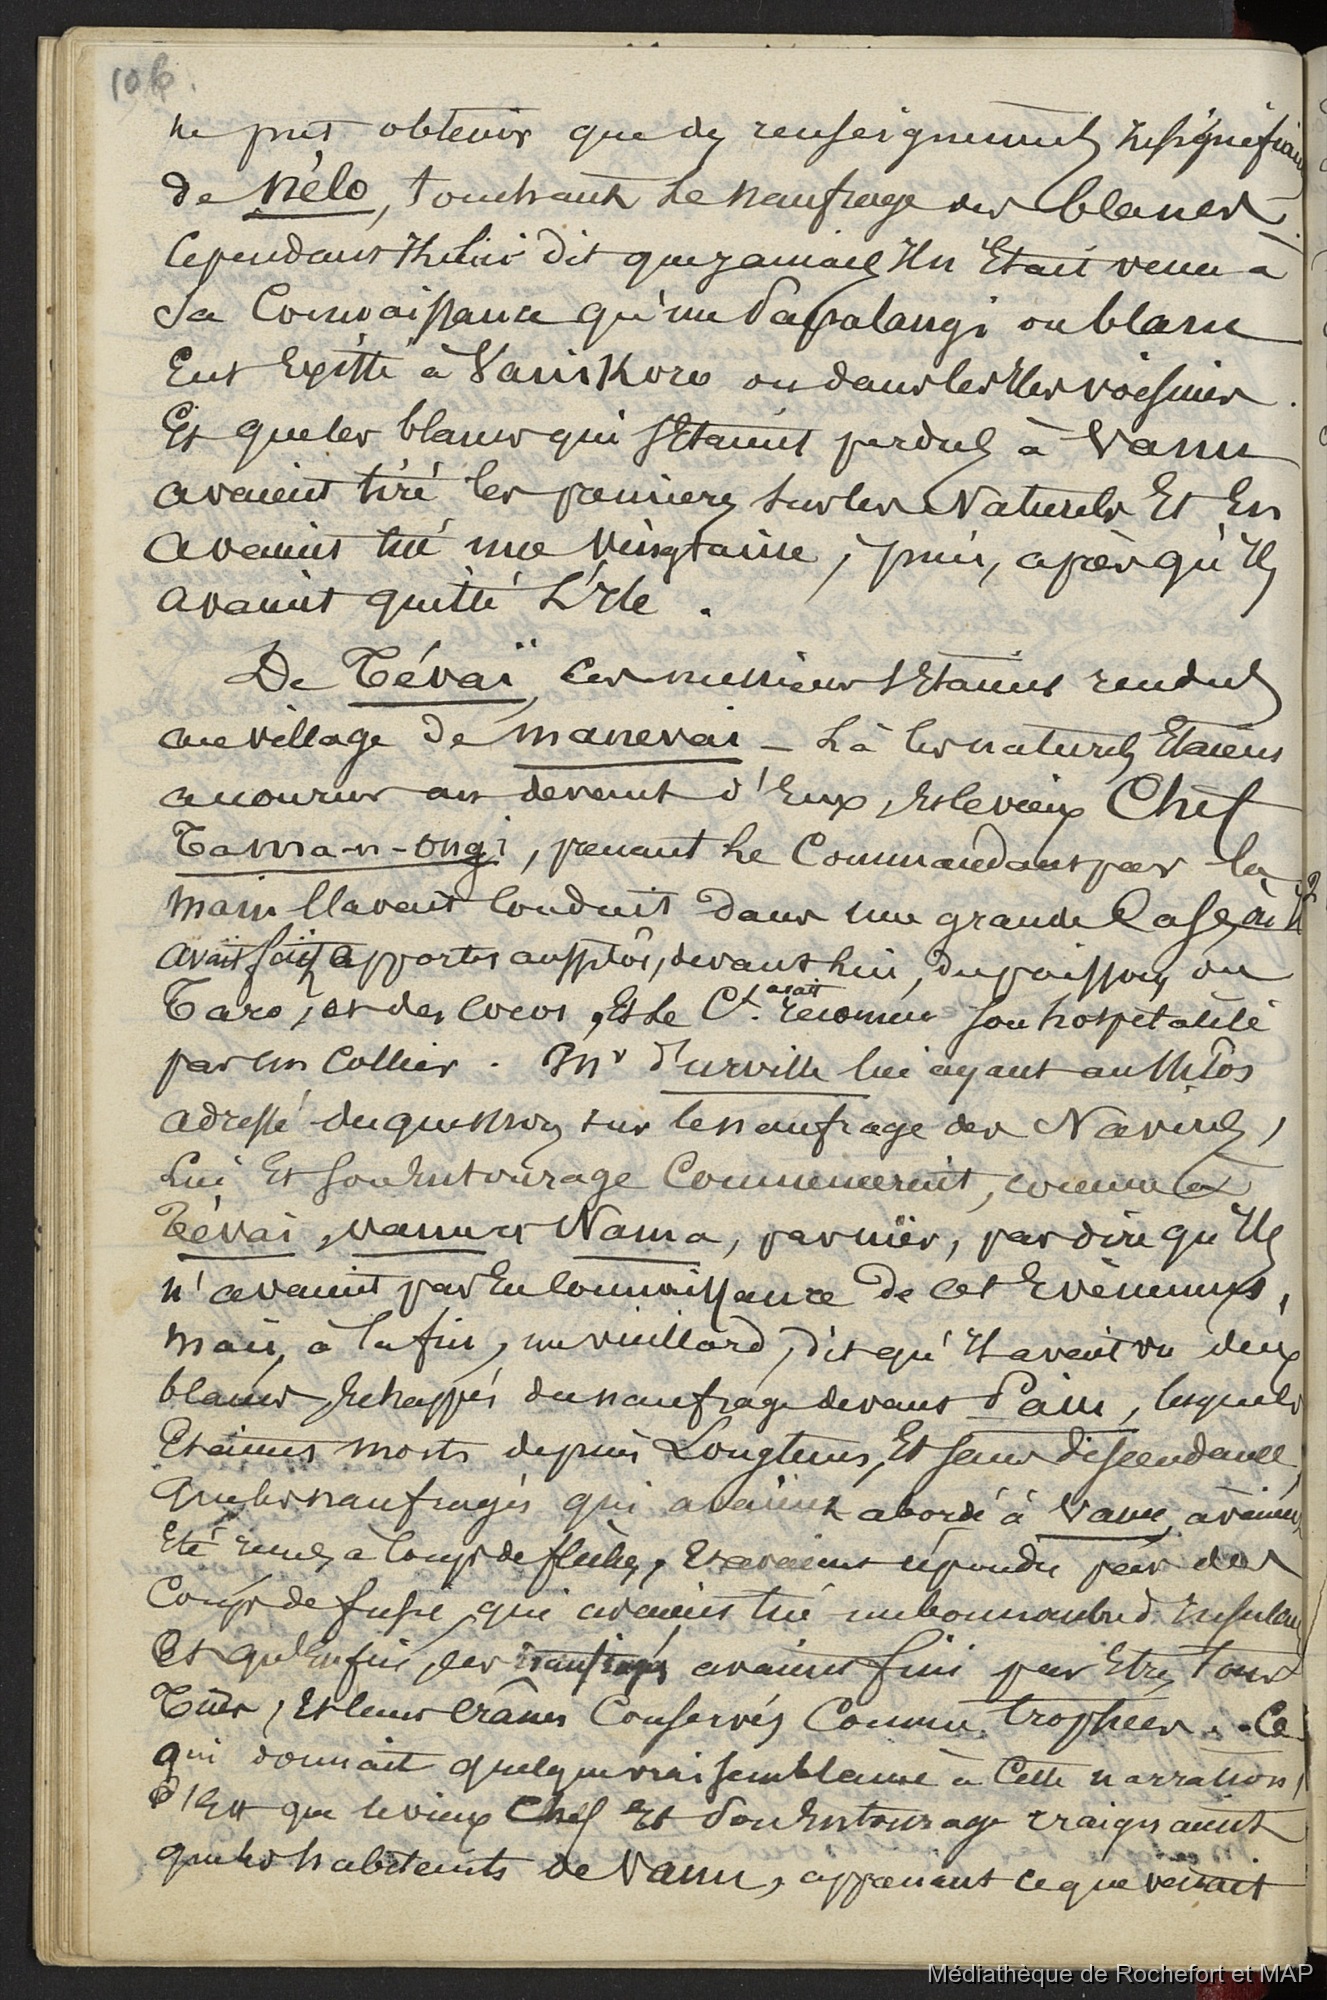 106.
ne put obtenir que des renseignements insignifians
de Nélo, touchant le naufrage des blancs.
Cependant Il lui dit que jamais Il n'Etait venu à
sa Connaissance qu'un Papalangi ou blanc
Eut Existé à Vanikoro ou dans les Iles voisines.
Et que les blancs qui s'Etaient perdus à Vanu
avaient tiré les premiers sur les Naturels Et En
avaient tué une vingtaine, puis, après qu'Ils
avaient quitté L'Ile.
De Tévaï, ces messieurs s'Etaient rendus
au village de Manevai – Là les naturels Etaient
accourus au devant d'Eux, Et le vieux Chef
Tamma-n-ongi, prenant Le Commandant par la
main l'avait Conduit dans une grande Case, où Il
avait fait apporter aussitôt, devant Lui, du poisson, du
Taro, et des Cocos, Et Le Ct. avait reconnu son hospitalité
par Un Collier. Mr d'urville lui ayant aussitôt
adressé des questions sur le naufrage des Navires,
Lui Et son Entourage Commencèrent, comme à
Tévai, Vanu et Nama, par nier, par dire qu'Ils
n'avaient pas Eu Connaissance de cet Evènement,
Mais, à la fin, un vieillard, dit qu'Il avait vu deux
blancs, Echappés du naufrage devant Païu, lesquels
Etaient morts depuis Longtems, Et sans descendance,
que les naufragés qui avaient abordé à Vanu, avaient
Eté reçus à Coups de flèches, Et avaient répondu par des
Coups de fusil, qui avaient tué un bon nombre d'Insulaires
Et qu'Enfin, les naufragés avaient fini par Etre tous
Tués, Et leurs Crânes Conservés Comme trophées. – Ce
qui donnait quelque vraisemblance à Cette narration,
C'Est que le vieux Chef Et son Entourage craignaient
que les habitants de Vanu, apprenant ce que venait
Médiathèque de Rochefort et MAP